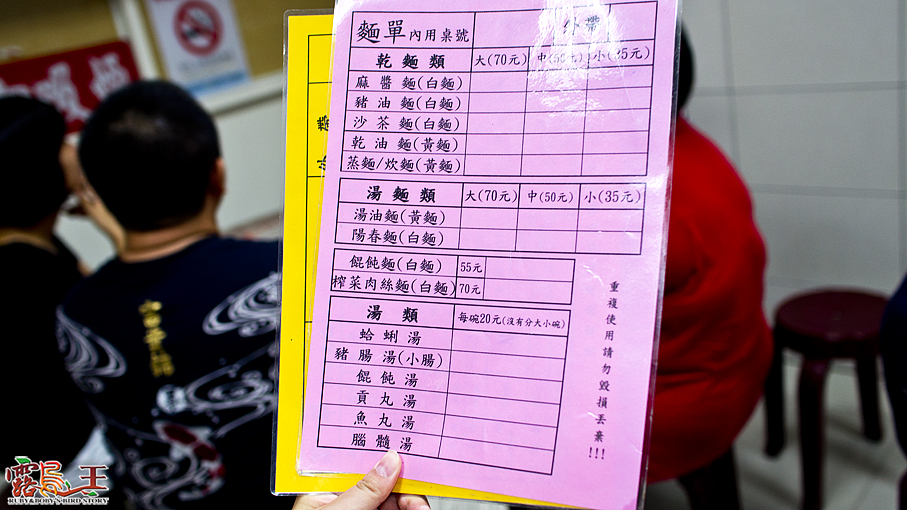 麵單內用桌號 外帶
乾麵類 大(70元) 中(50元) 小(35元)
麻醬麵(白麵)
豬油麵(白麵)
沙茶麵(白麵)
乾油麵(黃麵)
蒸麵/炊麵(黃麵)
湯麵類 大(70元) 中(50元) 小(35元)
湯油麵(黃麵)
陽春麵(白麵)
餛飩麵(白麵) 55元
榨菜肉絲麵(白麵) 70元
湯類 每碗20元(沒有分大小碗)
蛤蜊湯
豬腸湯(小腸)
餛飩湯
貢丸湯
魚丸湯
腦髓湯
重複使用請勿毀損丟棄!!!
RUBY&BOBY'S BIRD STORY